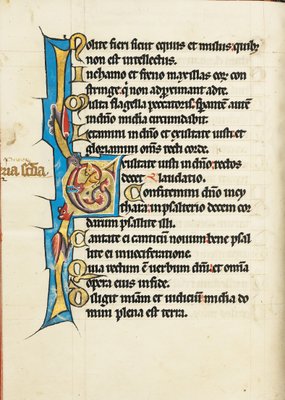 Nolite fieri sicut equus et mulus: quib;
non est intellectus.
In chamo et freno maxillas eor con
stringe: q̄ non adprximant ad te.
Multa flagella peccatoris: sperantē autē
in dn̄o mīa circumdabit.
Letamini in dn̄o et exultate iusti: et
gloriamini om̄s recti corde.
Exultate iusti in dn̄o: rectos
decet laudatio.
Confitemini dn̄o in cy
thara: in psalterio decem cor
darum psallite illi.
Cantate ei canticū nouum: bene psal
lite ei in uociferatione.
Quia rectum ē uerbum dn̄i: et om̄ia
opera eius in fide.
Diligit mīam et iudicium: mīa do
mini plena est terra.
ria scd̄a